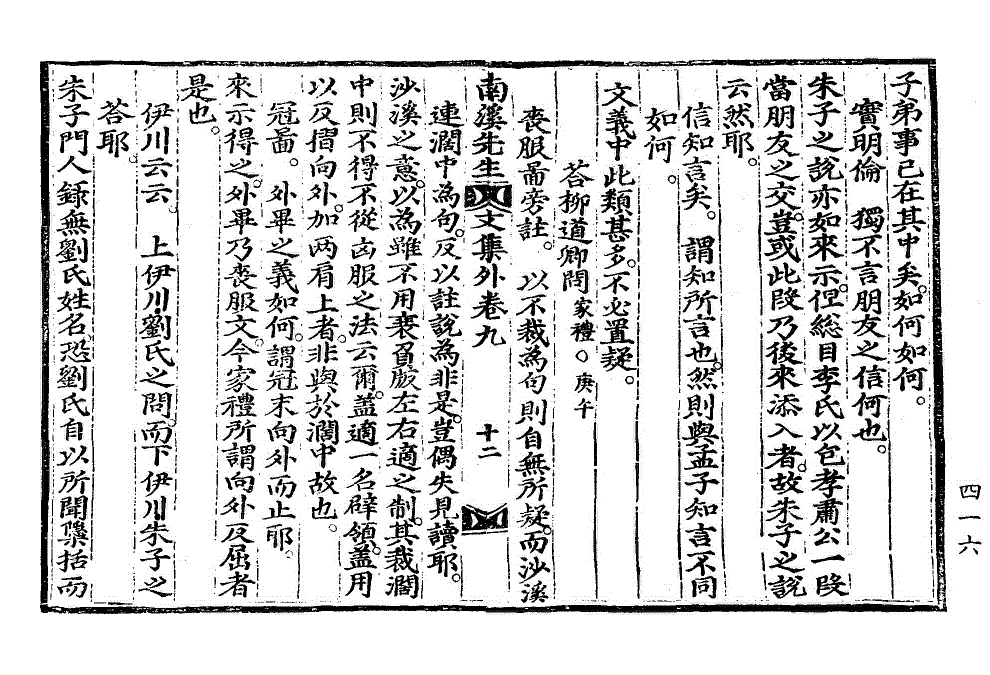 子弟事已在其中矣。如何如何。
實明倫 獨不言朋友之信何也。
朱子之說亦如來示。但総目李氏以包孝肅公一段
當朋友之交。豈或此段乃後來添入者。故朱子之說
云然耶。
信知言矣。 謂知所言也。然則與孟子知言不同
如何。
文義中此類甚多。不必置疑。
荅柳道卿問 家禮○庚午
喪服圖旁註。 以不裁為句則自無所疑。而沙溪
南溪先生文集外卷九 十二
連濶中為句。反以註說為非是。豈偶失見讀耶。
沙溪之意。以為雖不用衰負版左右適之制。其裁濶
中則不得不從凶服之法云爾。盖適一名辟領。盖用
以反摺向外。加两肩上者。非與於濶中故也。
冠啚。 外畢之義如何。謂冠末向外而止耶。
來示得之。外畢乃喪服文。今家禮所謂向外反屈者
是也。
伊川云云。 上伊川。劉氏之問。而下伊川朱子之
荅耶。
朱子門人錄無劉氏姓名。恐劉氏自以所聞櫽括而
四一六